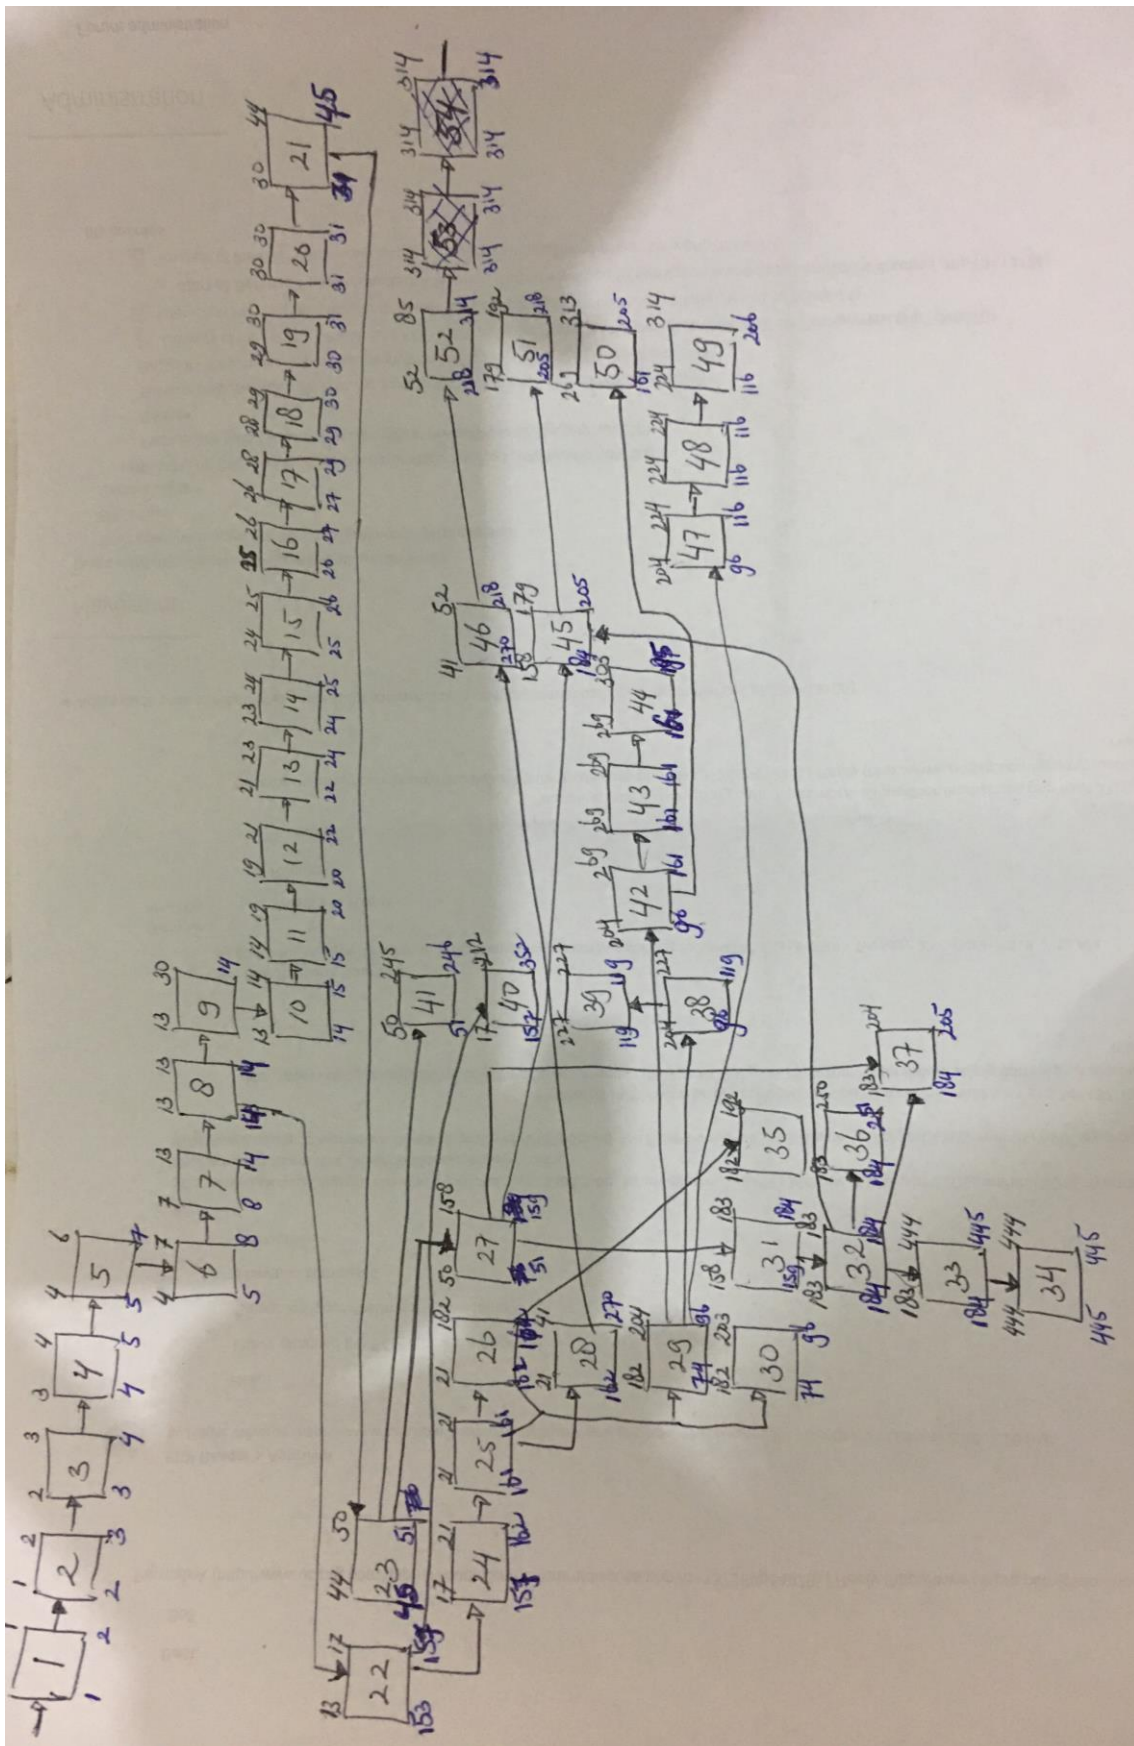 1
1
1 2
1 2
2
2 3
2 3
3
3 4
3 4
4
4 5
4 6
5
5 7
4 7
6
5 8
7 13
7
8 14
13 13
8
14
13 30
9
14
13 14
10
14 15
14 19
11
15 20
19 21
12
20 22
21 23
13
22 24
23 24
14
24 25
24 25
15
25 26
25 26
16
26 27
26 28
17
27 29
28 29
18
29 30
29 30
19
30 31
30 30
20
31 31
30 44
21
31 45
13 17
22
153
44 50
23
45 51
17 21
24
162
21 21
25
161 161
21 182
26
162
50 158
27
51 159
21 41
28
162 270
182 204
29
74 96
182 203
30
74 96
158 183
31
159 184
183 183
32
184 184
183 444
33
184 445
444 444
34
445 445
182 192
35
183 250
36
184 251
183 204
37
184 205
204 227
38
96 119
227 227
39
119 119
17 212
40
152 352
50 245
41
51 246
204 269
42
96 161
269 269
43
161 161
269 303
44
161 195
158 179
45
184 205
41 52
46
270 218
204 224
47
96 116
224 224
48
116 116
224 314
49
116 206
269 313
50
161 205
179 192
51
205 218
52 85
52
218 314
314 314
53
314 314
314 314
54
314 314